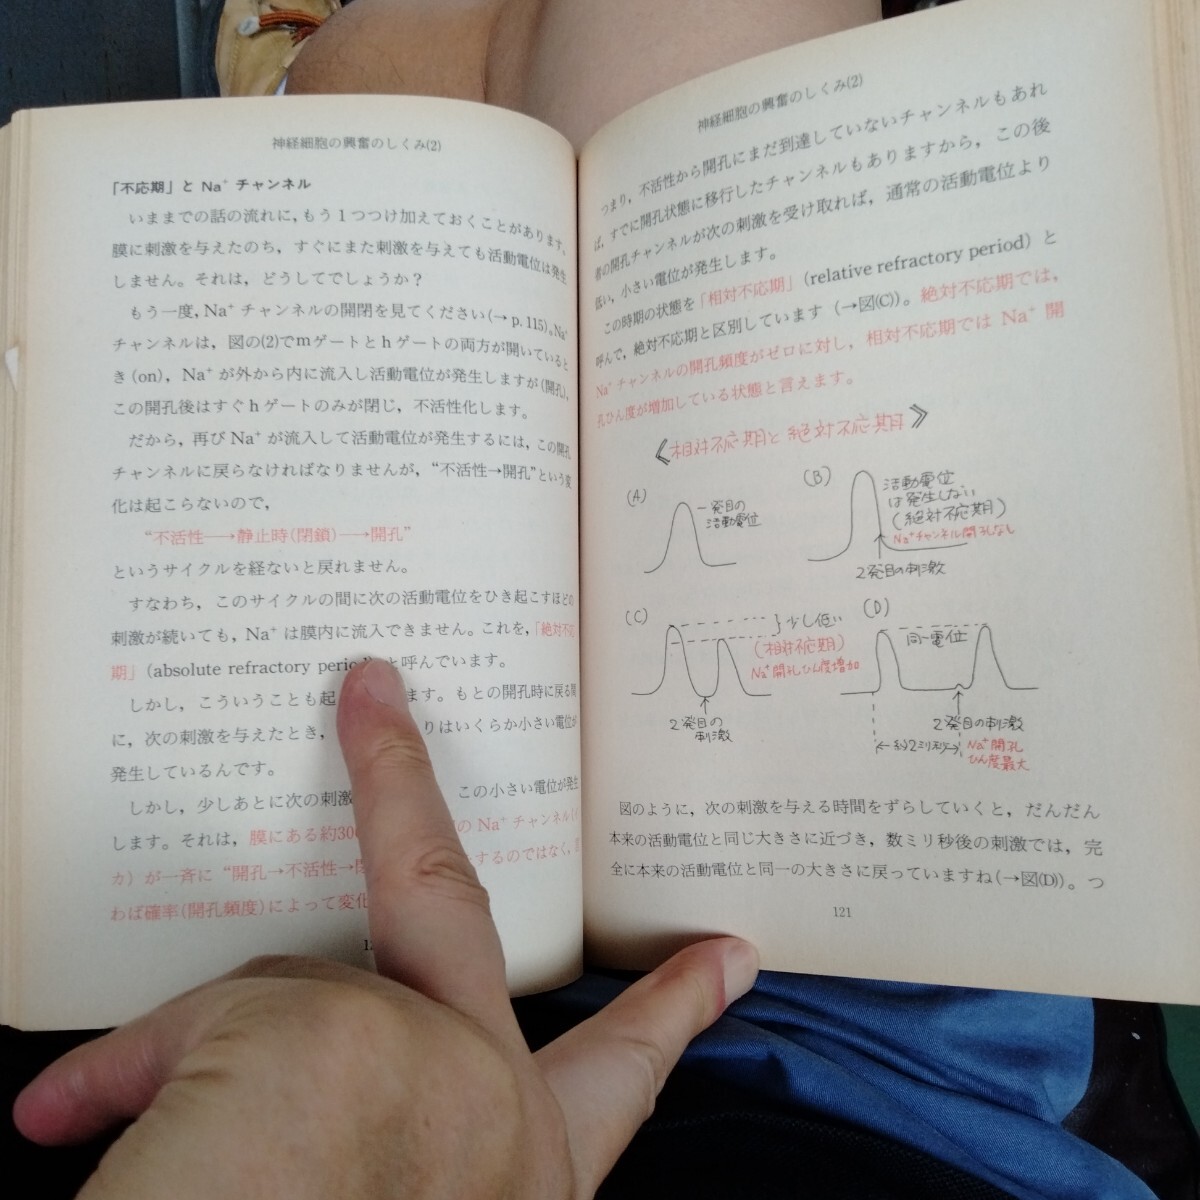 神経細胞の興奮のしくみ(2)
「不応期」と Na⁺ チャンネル
いままでの話の流れに, もう1つつけ加えておくことがあります。
膜に刺激を与えたのち, すぐにまた刺激を与えても活動電位は発生
しません。それは, どうしてでしょうか?
もう一度, Na⁺ チャンネルの開閉を見てください(→ p. 115)。Na⁺
チャンネルは, 図の(2)でmゲートとhゲートの両方が開いていると
き(on), Na⁺ が外から内に流入し活動電位が発生しますが(開孔),
この開孔後はすぐhゲートのみが閉じ, 不活性化します。
だから, 再び Na⁺ が流入して活動電位が発生するには, この開孔
チャンネルに戻らなければなりませんが, “不活性→開孔”という変
化は起こらないので,
“不活性→静止時(閉鎖)→開孔”
というサイクルを経ないと戻れません。
すなわち, このサイクルの間に次の活動電位をひき起こすほどの
刺激が続いても, Na⁺ は膜内に流入できません。これを,「絶対不応
期」(absolute refractory period) と呼んでいます。
しかし, こういうことも起 ます。もとの開孔時に戻る間
に, 次の刺激を与えたとき, りはいくらか小さい電位が
発生しているんです。
しかし, 少しあとに次の刺激 この小さい電位が発生
します。それは, 膜にある約300 の Na⁺ チャンネル
カ) が一斉に “開孔→不活性→ するのではなく,
わば確率(開孔頻度)によって変化
神経細胞の興奮のしくみ(2)
つまり, 不活性から開孔にまだ到達していないチャンネルもあれ
ば, すでに開孔状態に移行したチャンネルもありますから, この後
者の開孔チャンネルが次の刺激を受け取れば, 通常の活動電位より
低い, 小さい電位が発生します。
この時期の状態を「相対不応期」(relative refractory period) と
呼んで, 絶対不応期と区別しています (→図(C))。絶対不応期では,
Na⁺ チャンネルの開孔頻度がゼロに対し, 相対不応期では Na⁺ 開
孔ひん度が増加している状態と言えます。
《相対不応期と絶対不応期》
(A)
一発目の
活動電位
(B)
活動電位
は発生しない
(絶対不応期)
Na⁺チャンネル開孔なし
2発目の刺激
(C)
少し低い
(相対不応期)
Na⁺開孔ひん度増加
2発目の
刺激
(D)
同一電位
2発目の刺激
約2ミリ秒
Na⁺開孔
ひん度最大
図のように, 次の刺激を与える時間をずらしていくと, だんだん
本来の活動電位と同じ大きさに近づき, 数ミリ秒後の刺激では, 完
全に本来の活動電位と同一の大きさに戻っていますね(→図(D))。つ
121